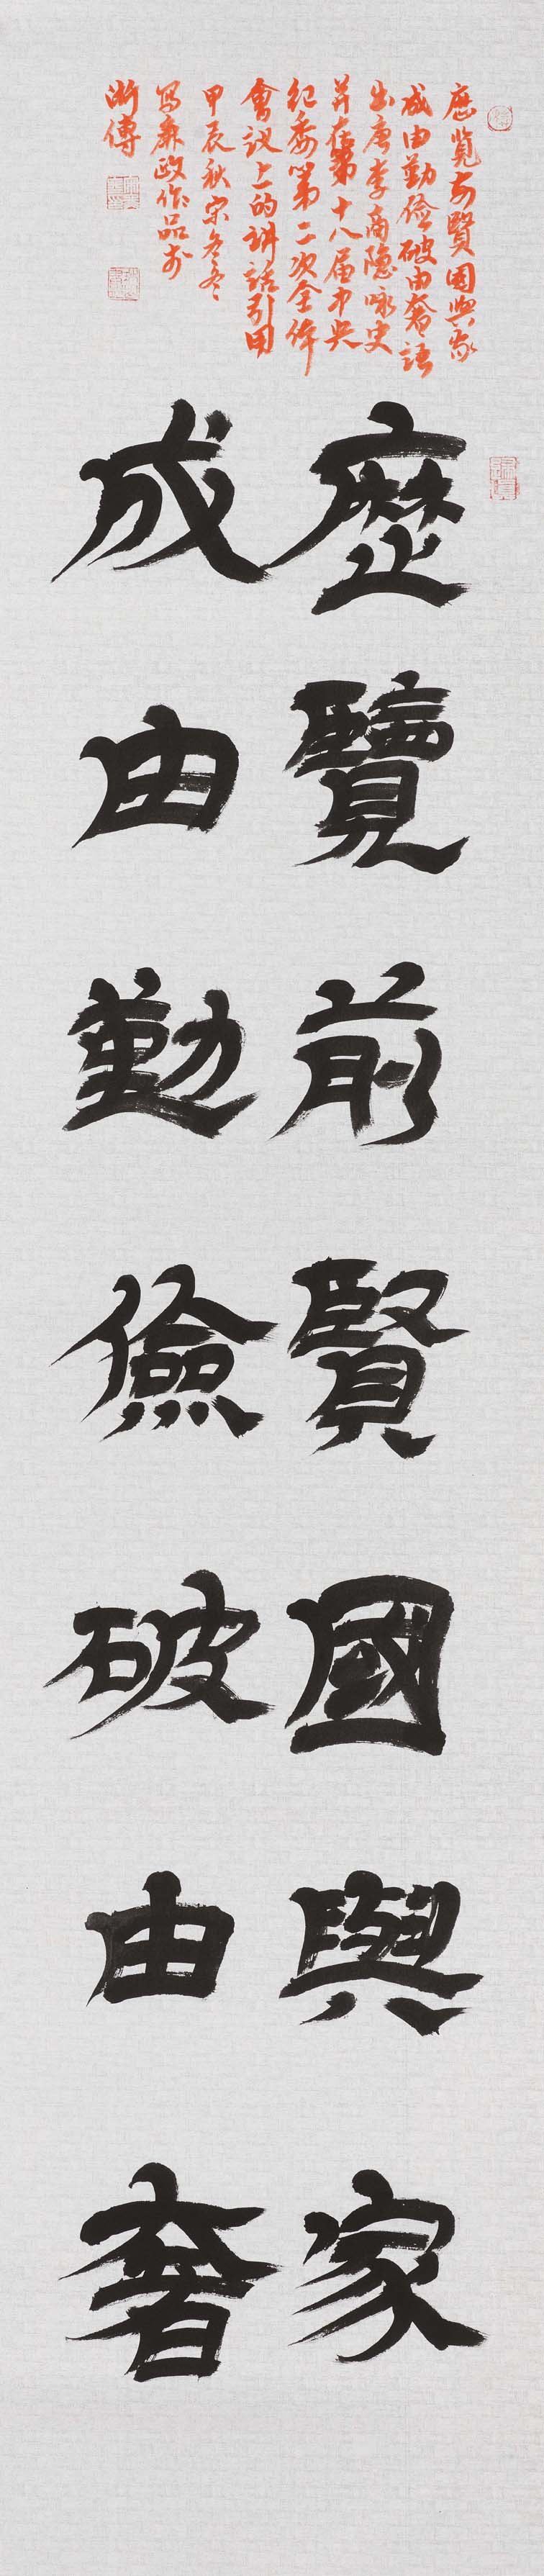 歷覽前賢國與家
成由勤儉破由奢語
出唐李商隱咏史
并在第十八届中央
纪委第二次全体
會议上的讲話引用
甲辰秋宋冬冬
寫廉政作品於
浙傳
歷覽前賢國與家
成由勤儉破由奢